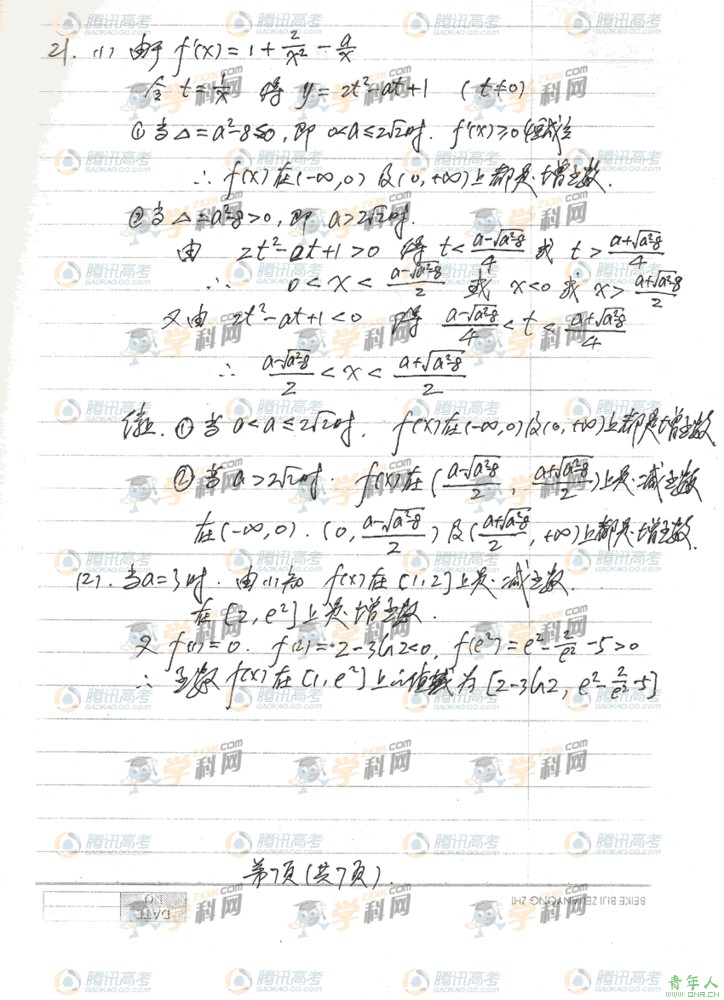 21. (1) 由于 f'(x) = 1 + 2/x² - a/x
令 t = 1/x 得 y = 2t² - at + 1 (t≠0)
① 当 △ = a² - 8 ≤ 0, 即 0 < a ≤ 2√2 时. f'(x) ≥ 0 恒成立
∴ f(x) 在 (-∞, 0) 及 (0, +∞) 上都是增函数.
② 当 △ = a² - 8 > 0, 即 a > 2√2 时.
由 2t² - at + 1 > 0 得 t < (a-√(a²-8))/4 或 t > (a+√(a²-8))/4
∴ 0 < x < (a-√(a²-8))/2 或 x < 0 或 x > (a+√(a²-8))/2
又由 2t² - at + 1 < 0 得 (a-√(a²-8))/4 < t < (a+√(a²-8))/4
∴ (a-√(a²-8))/2 < x < (a+√(a²-8))/2
综上 ① 当 0 < a ≤ 2√2 时. f(x) 在 (-∞, 0) 及 (0, +∞) 上都是增函数
② 当 a > 2√2 时. f(x) 在 ((a-√(a²-8))/2, (a+√(a²-8))/2) 上是减函数
在 (-∞, 0). (0, (a-√(a²-8))/2) 及 ((a+√(a²-8))/2, +∞) 上都是增函数.
(2). 当 a = 3 时. 由 (1) 知 f(x) 在 [1, 2] 上是减函数.
在 [2, e²] 上是增函数.
又 f(1) = 0. f(2) = 2 - 3ln2 < 0, f(e²) = e² - 2/e² - 5 > 0
∴ 函数 f(x) 在 [1, e²] 上的值域为 [2-3ln2, e² - 2/e² - 5]
第7页(共7页).
DATE
NO
BEIKE BIJI ZELIANYONG ZHI
腾讯高考
GAOKAO.QQ.COM
学科网
ZXXK.com
青年人
WWW.QNR.CN